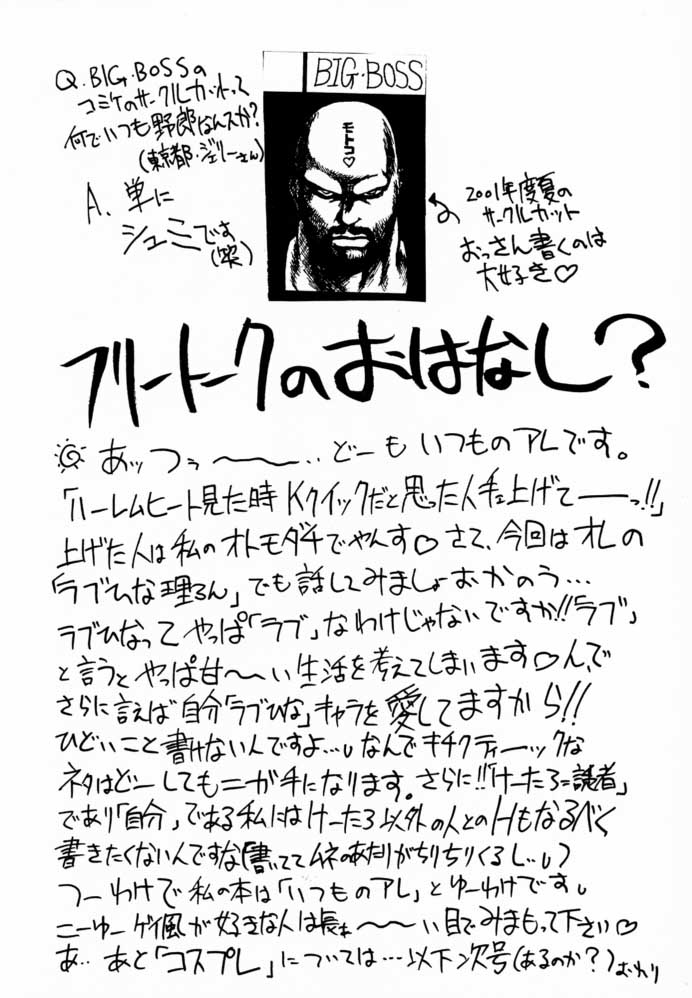 Q.BIG・BOSSの
コミケのサークルカットって
何でいつも野郎なんスか?
(東京都・ジェリーさん)
A. 単に
シュミです
(笑)
BIG・BOSS
モトコ♡
2001年度夏の
サークルカット
おっさん書くのは
大好き♡
フリートークのおはなし?
あッつぅ〜〜‥どーもいつものアレです。
「ハーレムヒート見た時Kクイックだと思った人手ェ上げてーーっ!!」
上げた人は私のオトモダチでやんす♡さて、今回はオレの
「ラブひな理ろん」でも話してみましょおかのう…
ラブひなってやっぱ「ラブ」なわけじゃないですか!!「ラブ」
と言うとやっぱ甘〜〜い生活を考えてしまいます♡んで
さらに言えば自分「ラブひな」キャラを愛してますから!!
ひどいこと書けない人ですよ…なんでキチクティーックな
ネタはどーしてもニガ手になります。さらに!!「けーたろ=読者」
であり「自分」である私にはけーたろ以外の人とのHもなるべく
書きたくないんですな(書いててムネのあたりがちりちりくるし…)
つーわけで私の本は「いつものアレ」とゆーわけです
こーゆー風が好きな人は長ぁ〜〜い目でみまもって下さい♡
あ‥あと「コスプレ」については…以下次号(あるのか?)おわり